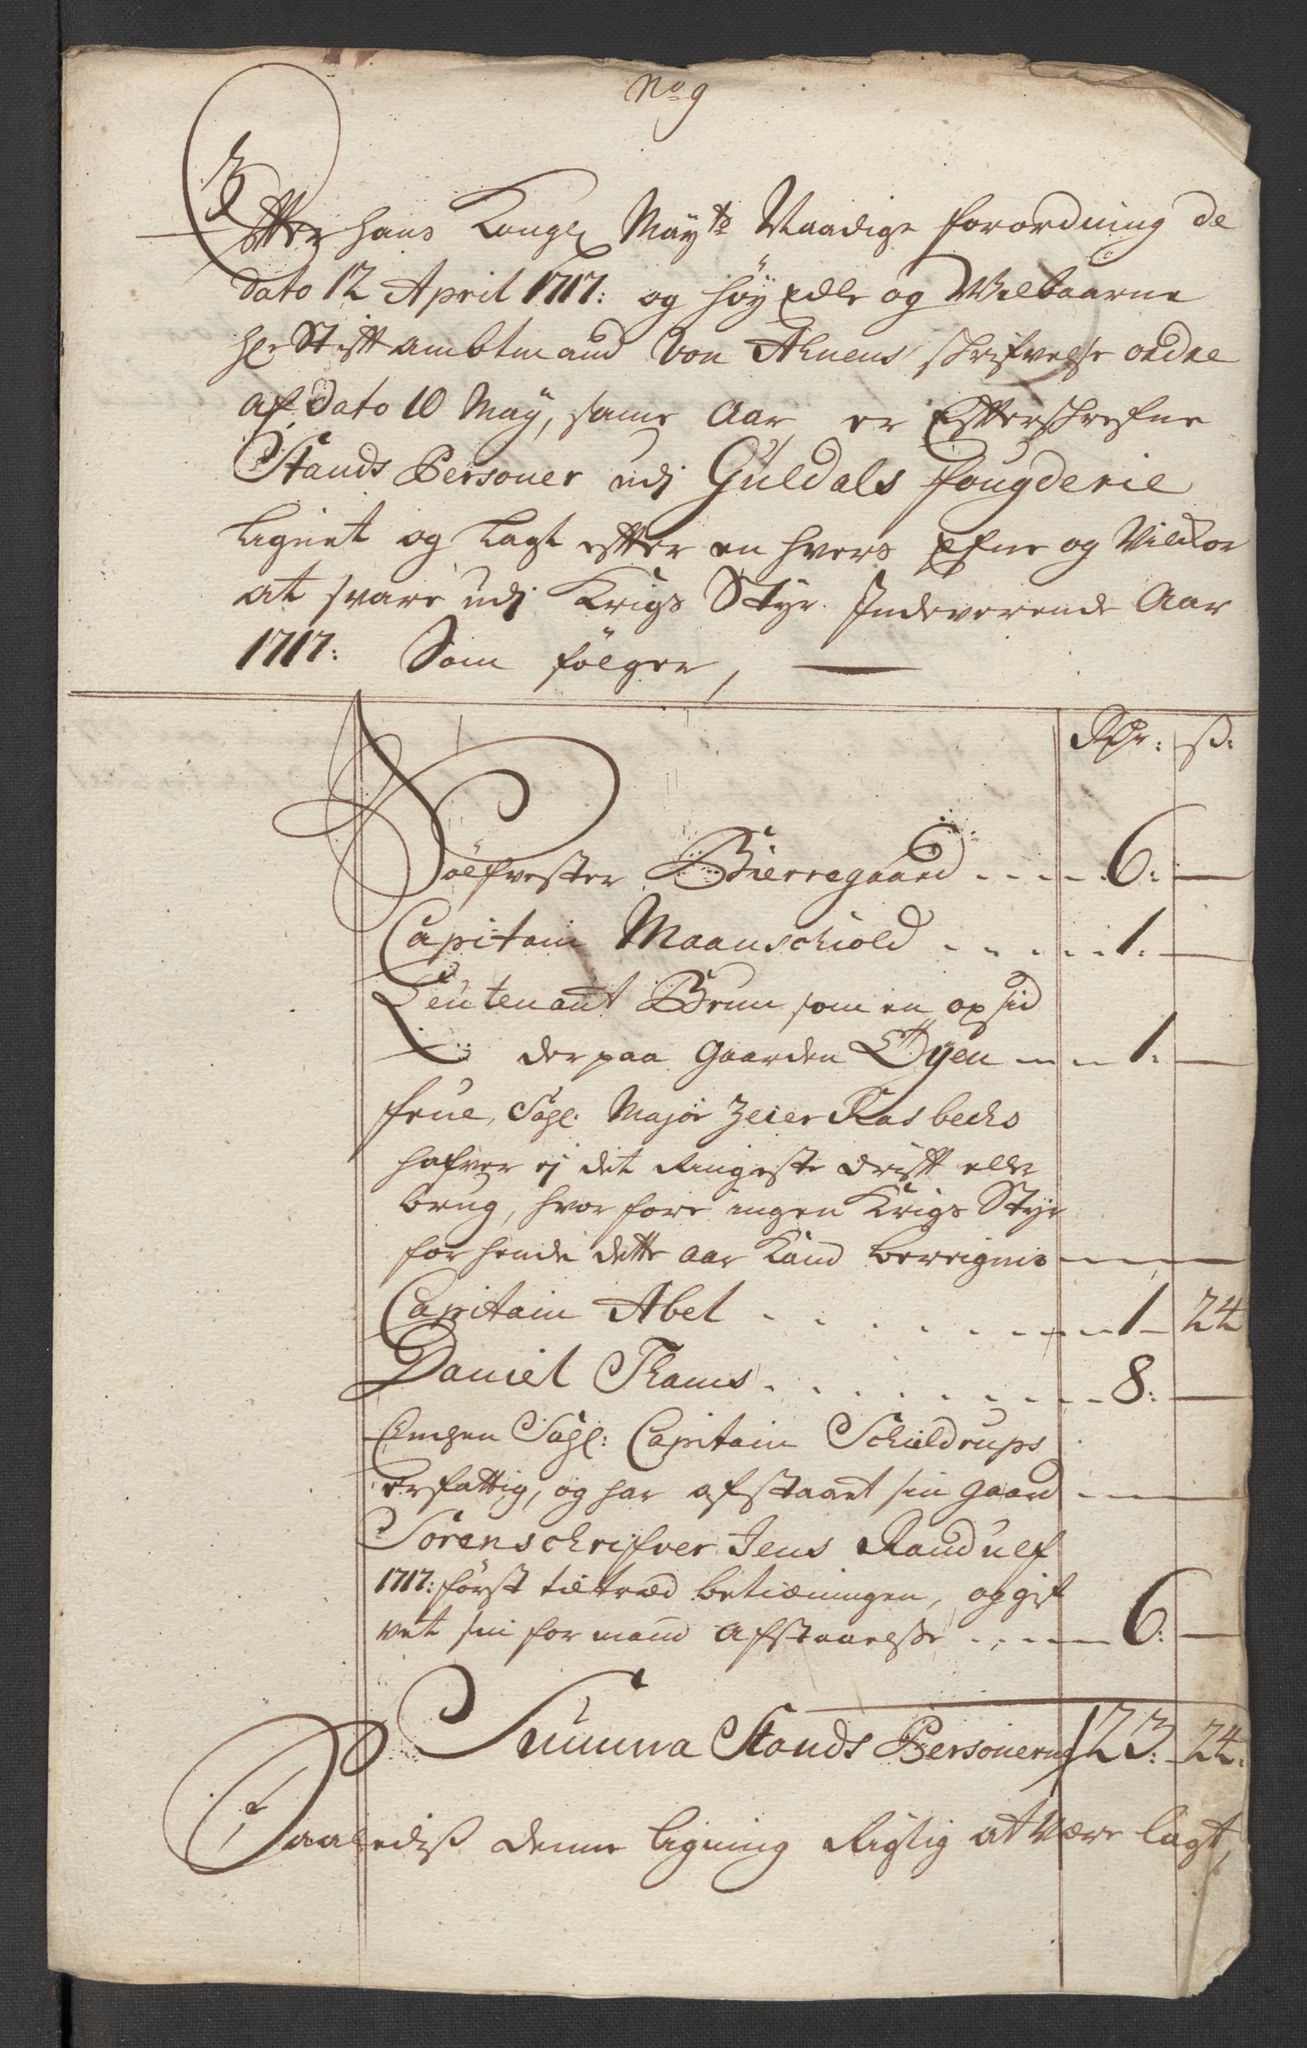 No 9
Efter hans Kongl May:ts Naadige forordning de
dato 12 April 1717: og höy Edle og Welbaarne
Hr Stiftambtmand von Ahnens schrifvelse ordre
af dato 10 May, same Aar, er Efterschrefne
Stands Personer udj Guldals fougderie
lignet og lagt efter en hvers Efne og Vilckor
at svare udj Krigs Styr Indeverende Aar
1717: Som fölger,
Rdr: ß:
Tölfvester Bierregaard 6: —
Capitain Maanschiold 1: —
Leutenant Brun som en opsid
der paa gaarden Öyen 1: —
frue, Sahl. Major Rasbechs
hafver ej det Ringeste drift eller
brug, hvorfore ingen Krigs Styr
for hende dette aar Kand bereignis —
Capitain Abel 1 24
Daniel Thams 8: —
Enchen Sahl: Capitain Schieldrups
er fattig, og har afstaaet sin gaard —
Sorenschrifver Jens Randulf
1717: först tiltræd betieningen, og gif
vet sin formand Afstaaelse 6: —
Summa Stands Personerne 23: 24:
Saaledis denne ligning Rigtig at Være lagt,